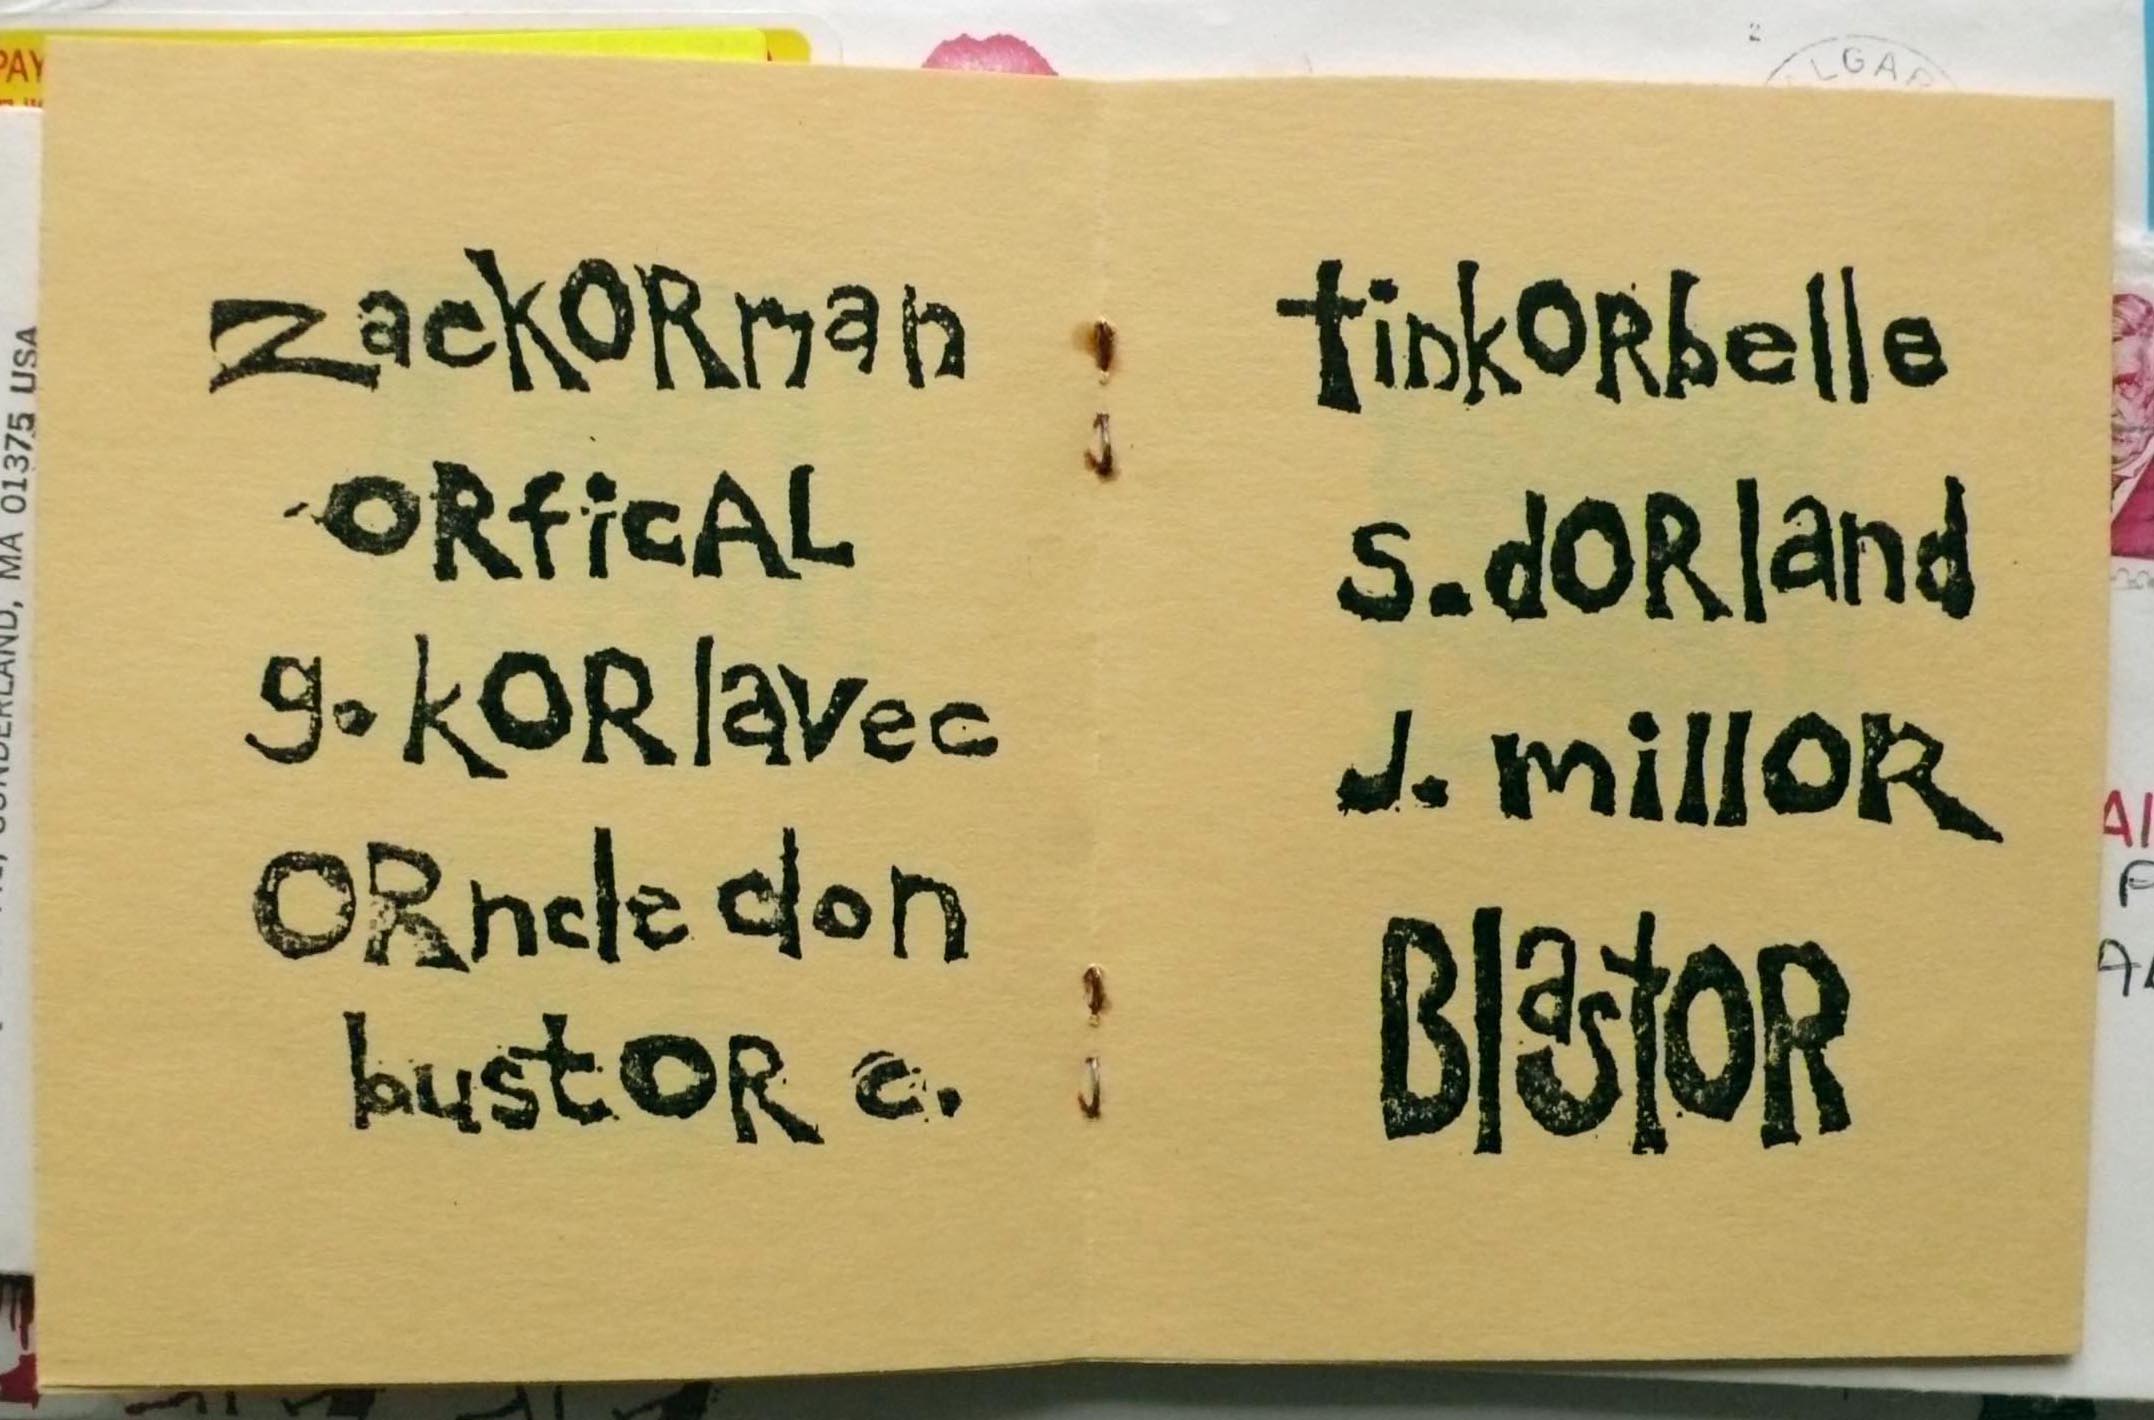 zackORman
ORficAL
g. kORlavec
ORncle don
bustOR c.
tinkORbelle
s. dORland
J. millOR
BlastOR
PAY
MA 01375 USA